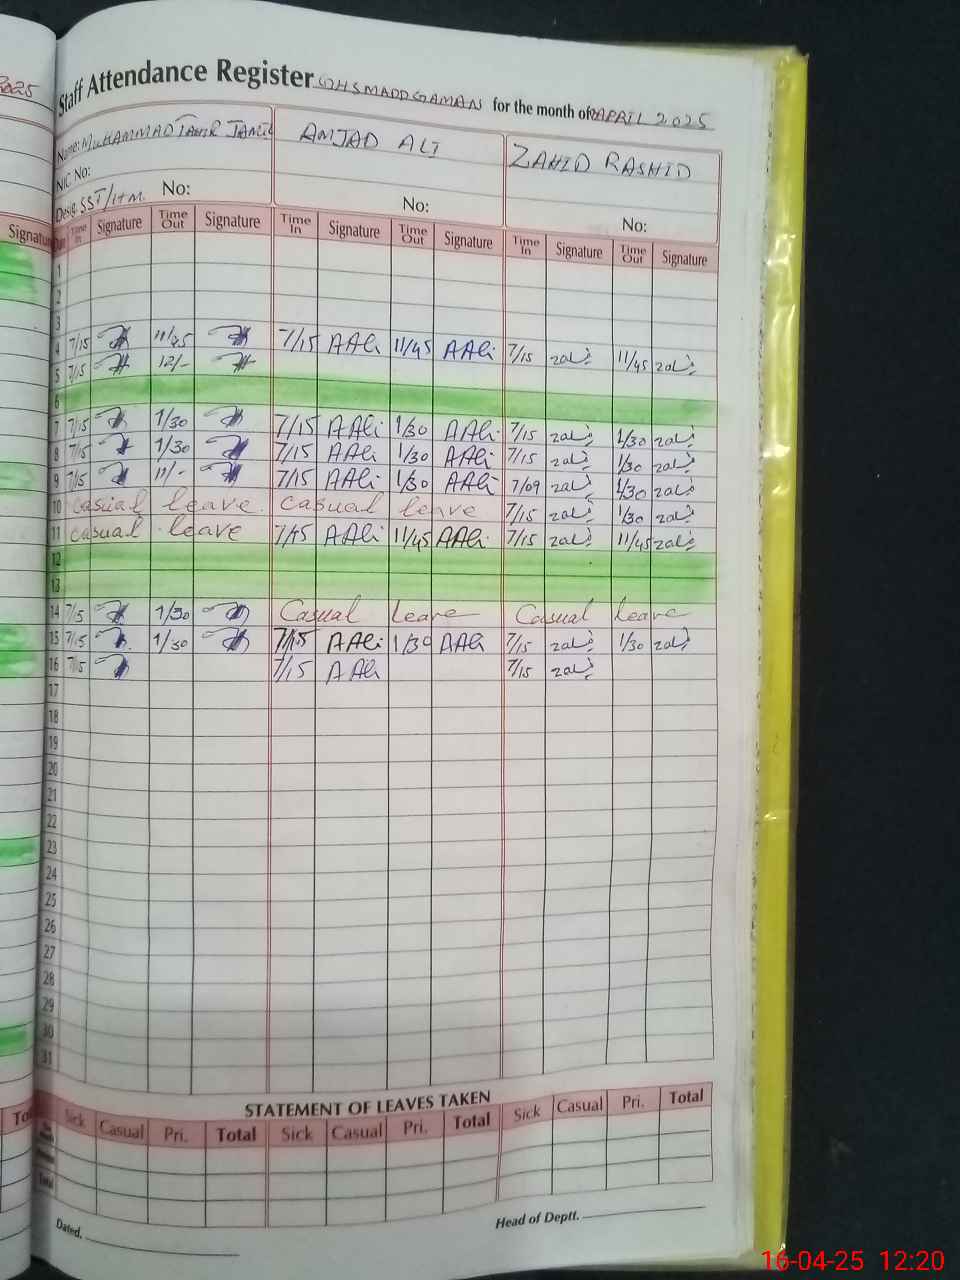 2025
Staff Attendance Register GHS MADD GAMAN for the month of APRIL 2025
Name: MUHAMMAD TAHIR JAMIL AMJAD ALI ZAHID RASHID
NIC No:
Desig. SST/HM. No: No: No:
Signature Time In Signature Time Out Signature Time In Signature Time Out Signature Time In Signature Time Out Signature
1
2
3
4 7/15 11/45 7/15 AAli 11/45 AAli 7/15 11/45
5 7/15 12/- 
6
7 7/15 1/30 7/15 AAli 1/30 AAli 7/15 1/30
8 7/15 1/30 7/15 AAli 1/30 AAli 7/15 1/30
9 7/15 11/- 7/15 AAli 1/30 AAli 7/09 1/30
10 casual leave. casual leave 7/15 1/30
11 casual leave 7/15 AAli 11/45 AAli 7/15 11/45
12
13
14 7/15 1/30 Casual Leave Casual Leave
15 7/15 1/30 7/15 AAli 1/30 AAli 7/15 1/30
16 7/15 7/15 AAli 7/15
17
18
19
20
21
22
23
24
25
26
27
28
29
30
31
STATEMENT OF LEAVES TAKEN
Sick Casual Pri. Total Sick Casual Pri. Total Sick Casual Pri. Total
Total
Dated. Head of Deptt.
16-04-25 12:20